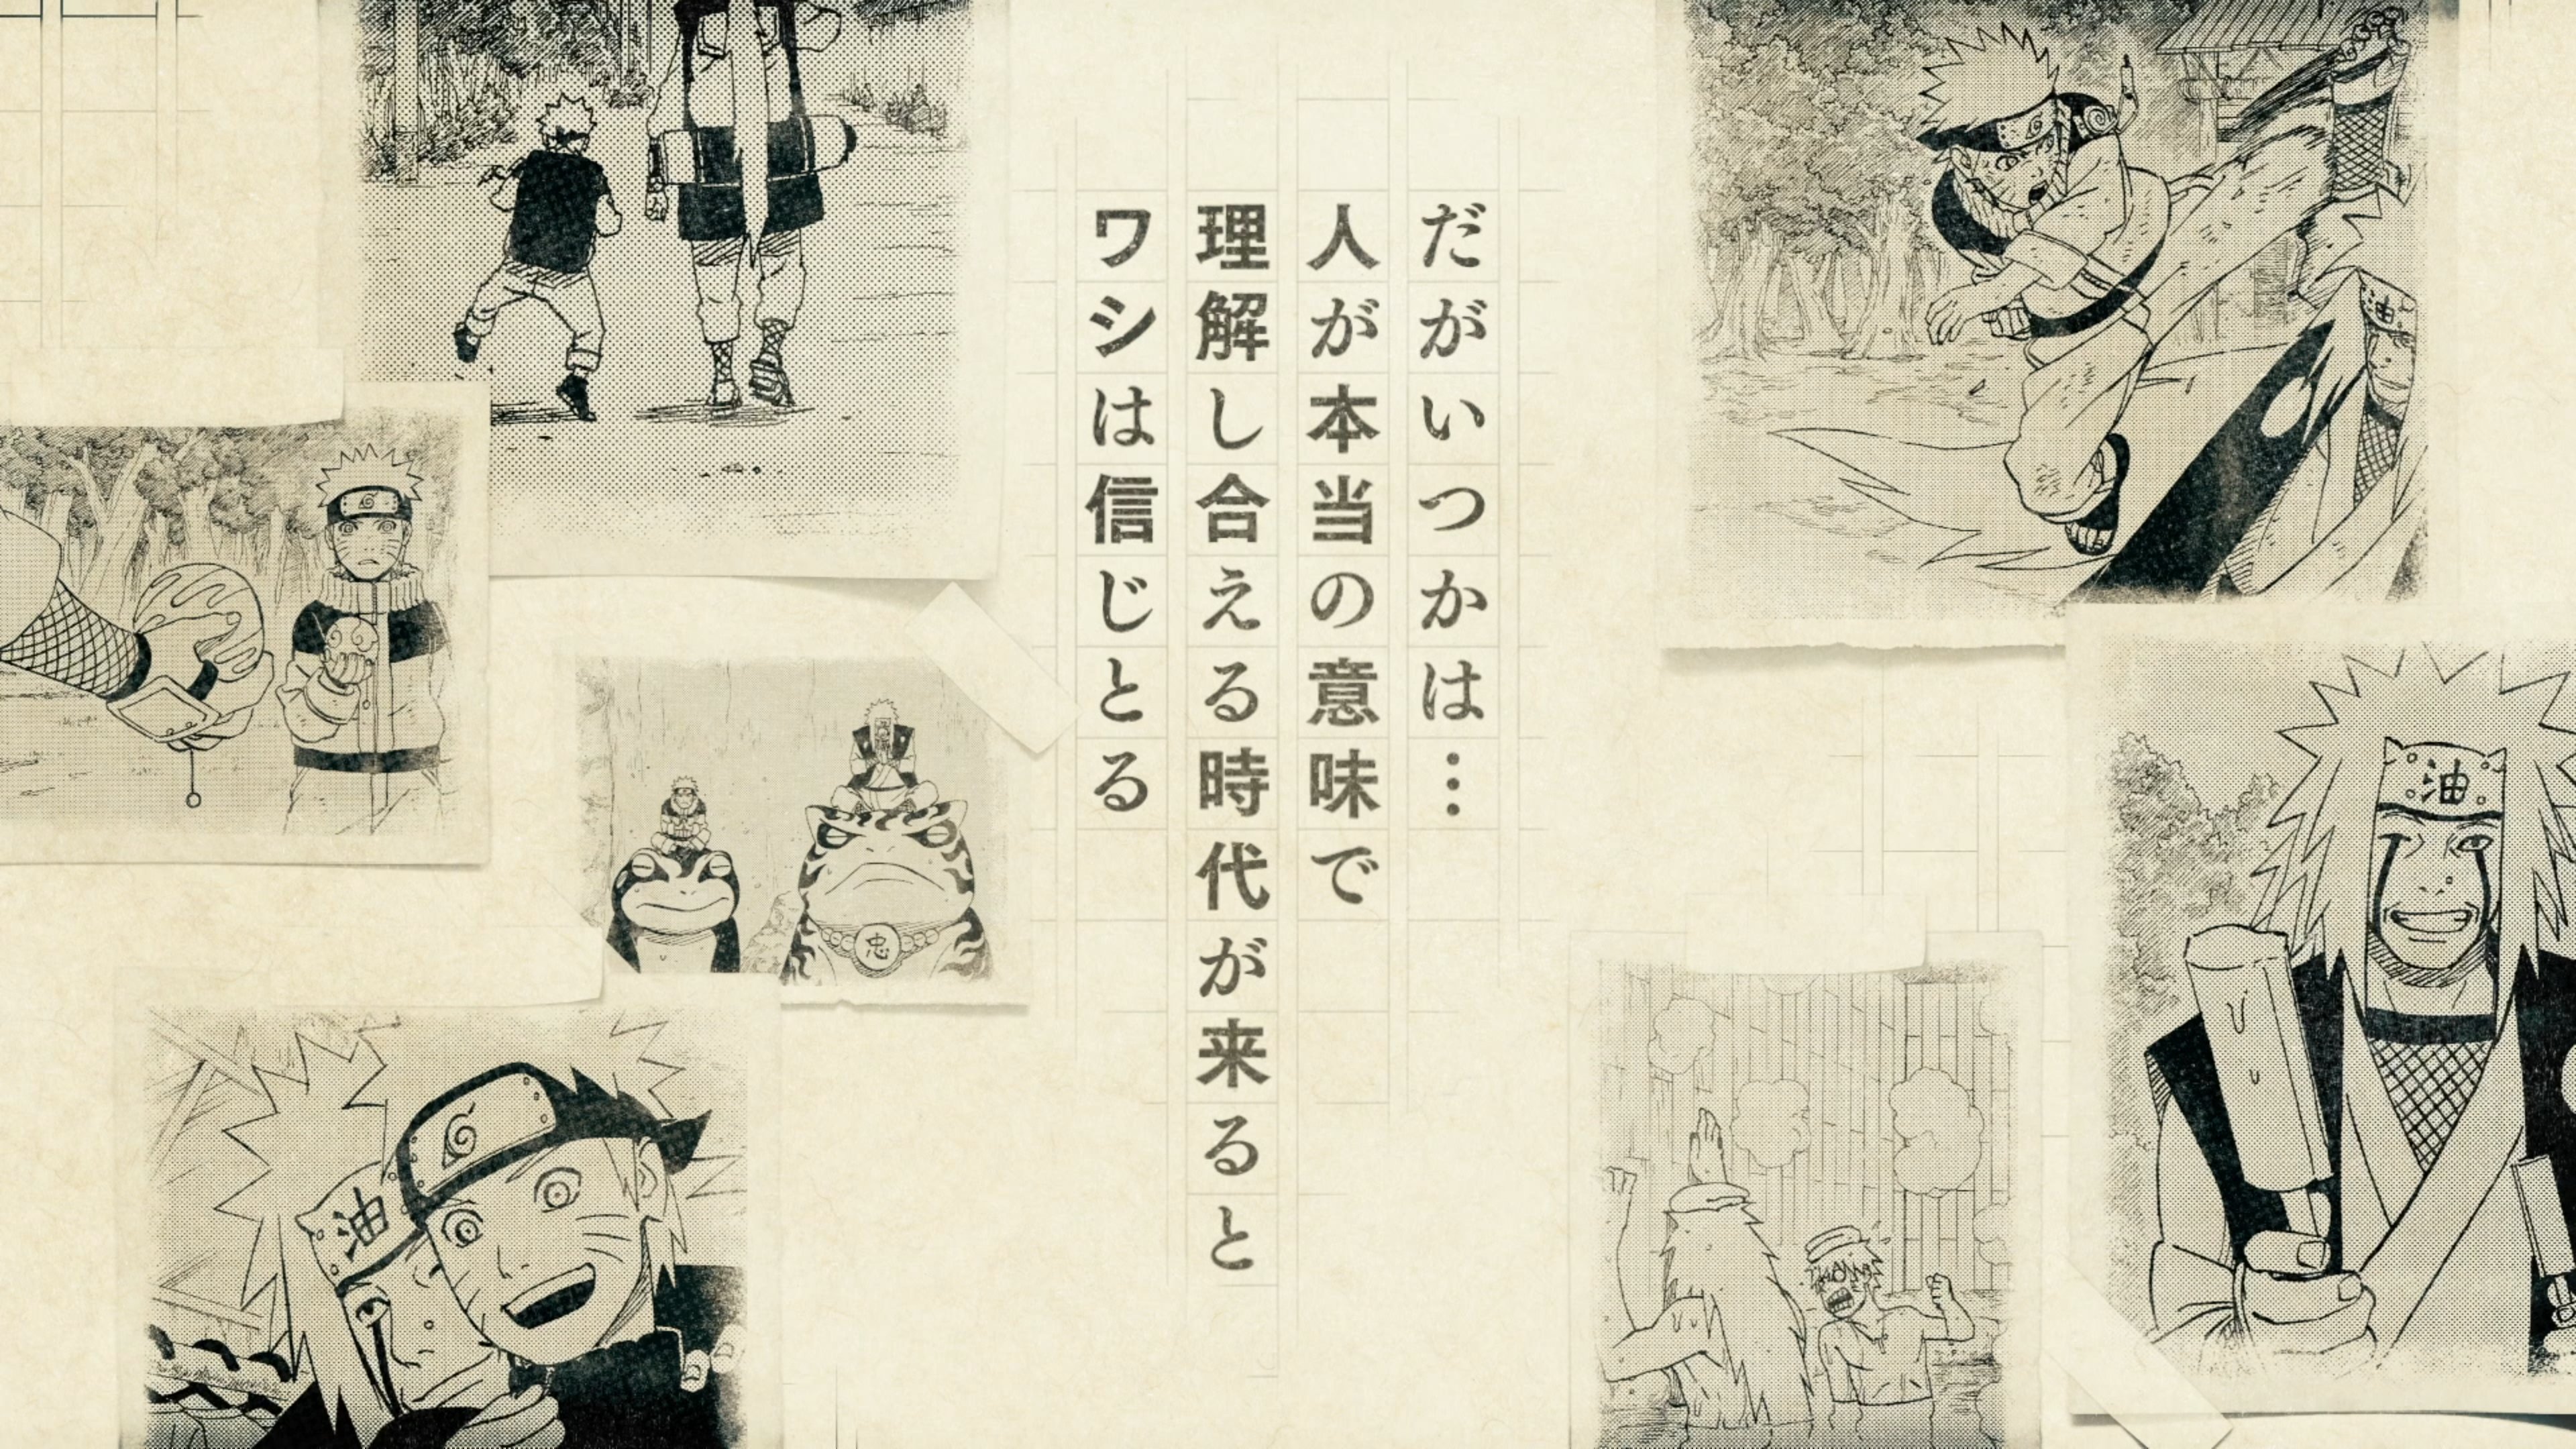 だがいつかは…
人が本当の意味で
理解し合える時代が来ると
ワシは信じとる
油
油
忠
油